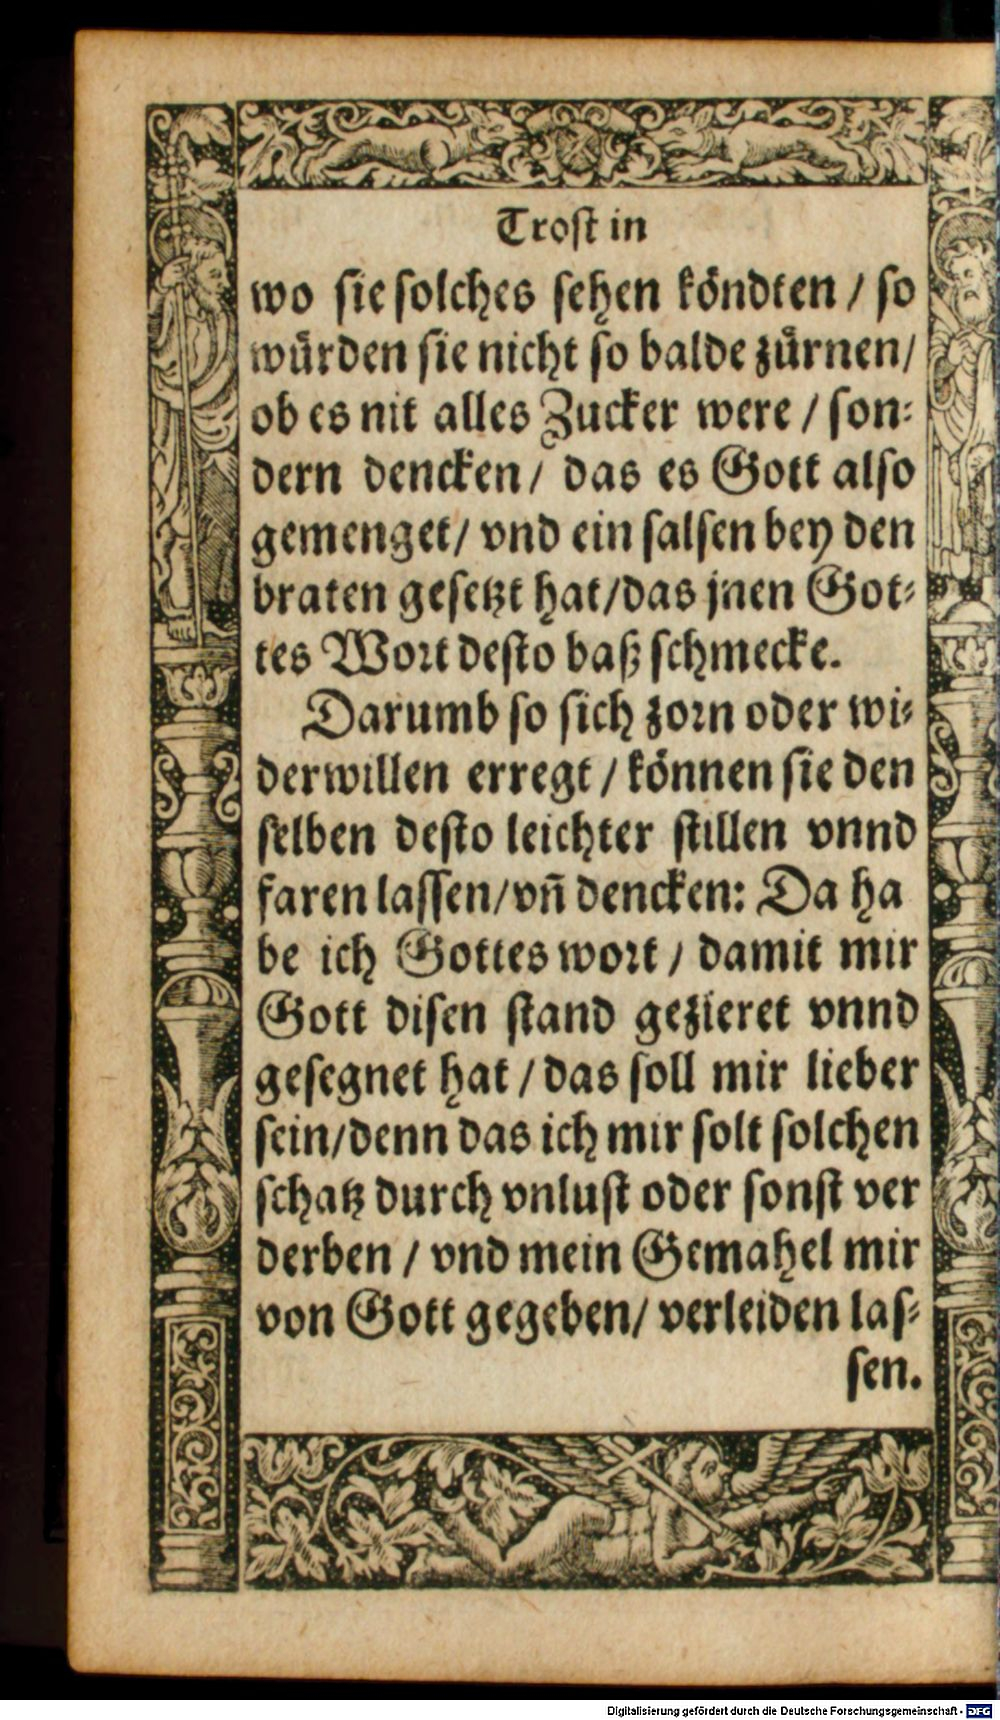 Trost in
wo sie solches sehen köndten / so
würden sie nicht so balde zürnen /
ob es nit alles Zucker were / son⸗
dern dencken / das es Gott also
gemenget / vnd ein salsen bey den
braten gesetzt hat / das jnen Got⸗
tes Wort desto baß schmecke.
Darumb so sich zorn oder wi⸗
derwillen erregt / können sie den
selben desto leichter stillen vnnd
faren lassen / vñ dencken: Da ha
be ich Gottes wort / damit mir
Gott disen stand gezieret vnnd
gesegnet hat / das soll mir lieber
sein / denn das ich mir solt solchen
schatz durch vnlust oder sonst ver
derben / vnd mein Gemahel mir
von Gott gegeben / verleiden las⸗
sen.
Digitalisierung gefördert durch die Deutsche Forschungsgemeinschaft - DFG